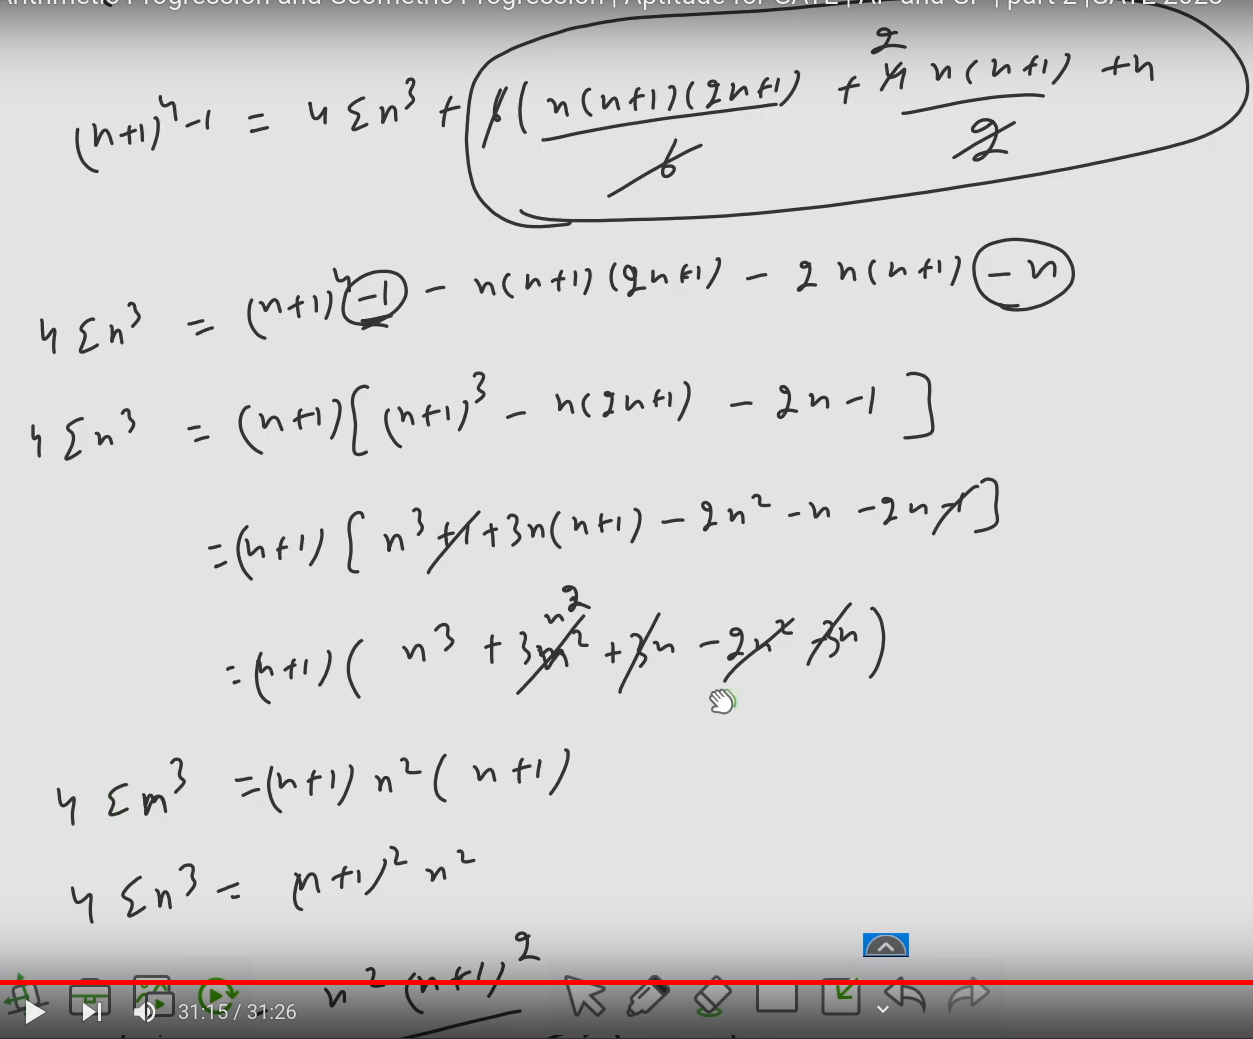 Arithmetic Progression and Geometric Progression | Aptitude for GATE | AP and GP | part 2 | GATE 2023
(n+1)⁴-1 = 4 Σn³ + 6( n(n+1)(2n+1)/6 + 4 2 n(n+1)/2 +n
4 Σn³ = (n+1)⁴ -1 - n(n+1)(2n+1) - 2n(n+1) - n
4 Σn³ = (n+1)[(n+1)³ - n(2n+1) - 2n-1 ]
=(n+1) [ n³+1+3n(n+1) - 2n² -n -2n -1]
=(n+1)( n³ + 3n² n² +3n -2n² -3n)
4 Σn³ =(n+1) n²( n+1)
4 Σn³ = (n+1)² n²
n² (n+1)²
31:15 / 31:26